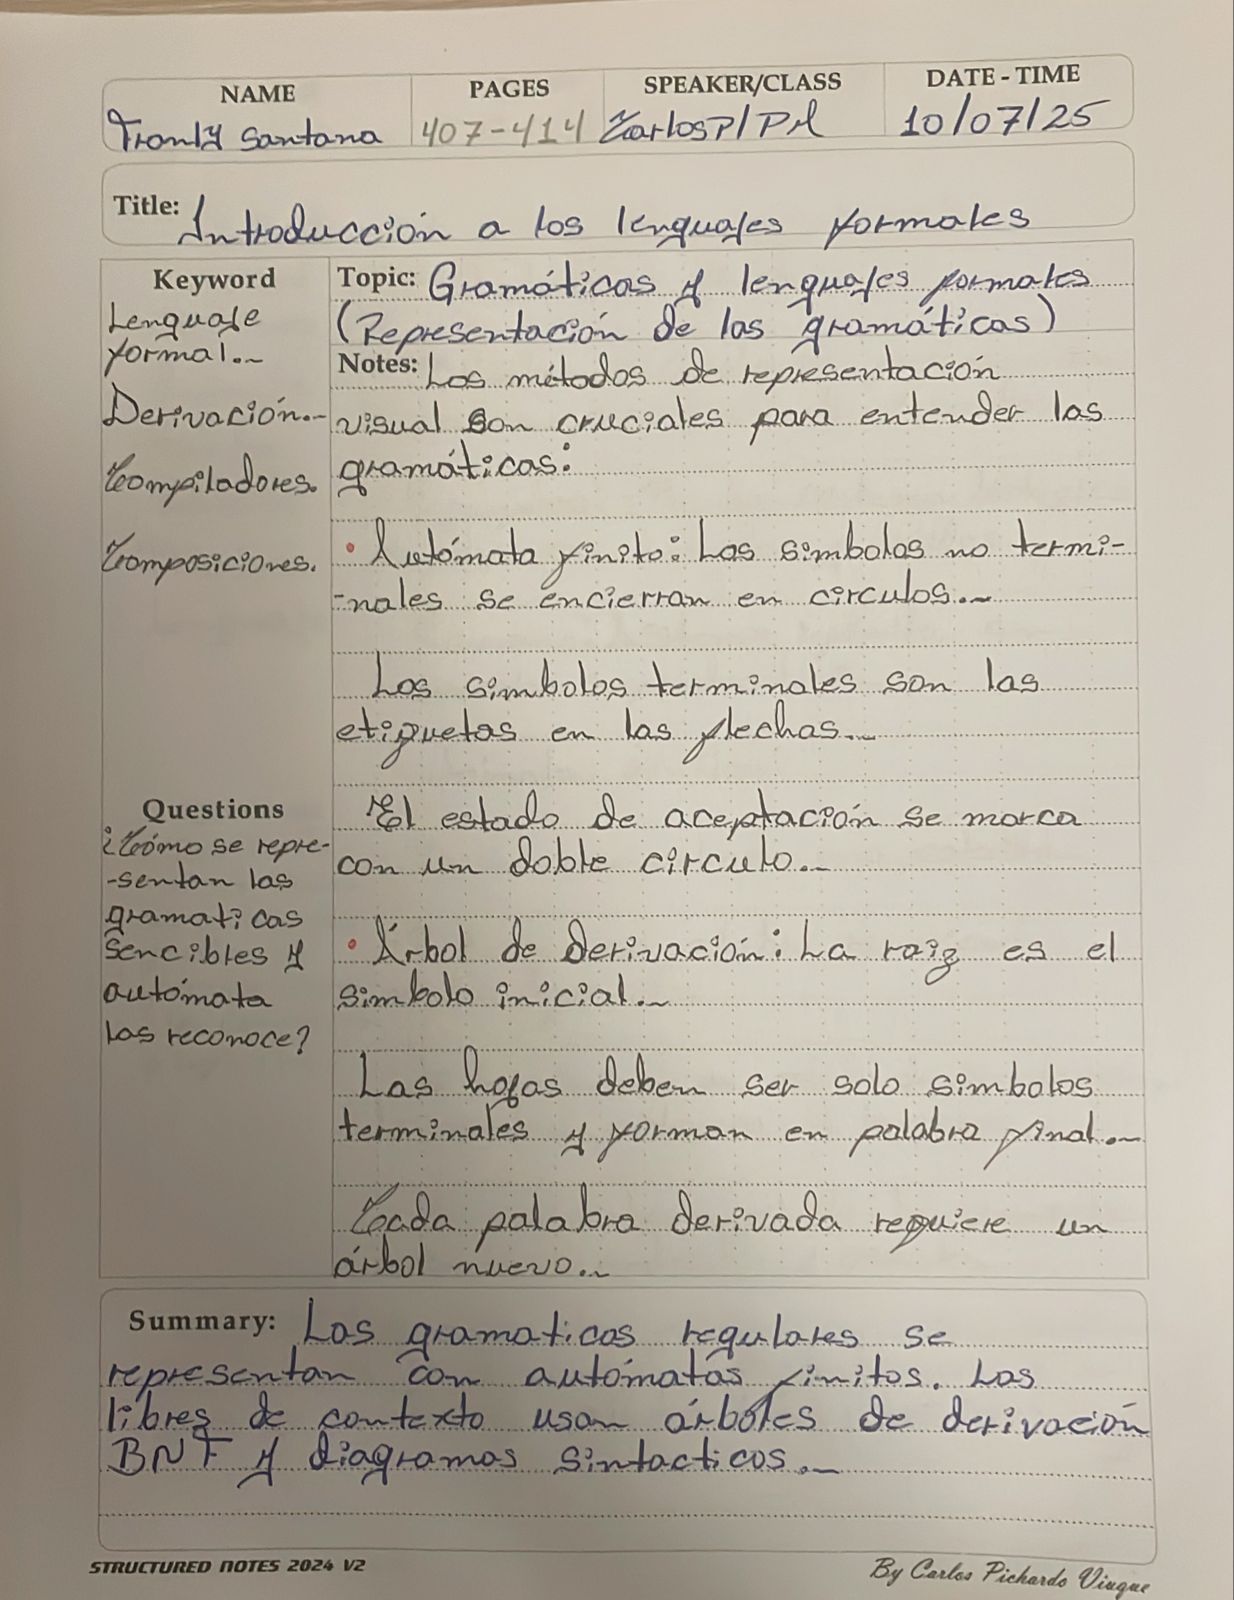 NAME PAGES SPEAKER/CLASS DATE - TIME
Santana 407-414 CarlosP/PM 10/07/25
Title: Introducción a los lenguajes formales
Keyword
Lenguaje
formal.
Derivación.
Compiladores.
Composiciones.
Questions
¿Cómo se repre-
-sentan las
gramaticas
sencibles y
autómata
las reconoce?
Topic: Gramáticas y lenguajes formales
(Representación de las gramáticas)
Notes: Los métodos de representación
visual son cruciales para entender las
gramáticas:
• Autómata finito: Los simbolos no termi-
-nales se encierran en circulos.
Los simbolos terminales son las
etiquetas en las flechas.
El estado de aceptación se marca
con un doble circulo.
• Árbol de derivación: La raiz es el
simbolo inicial.
Las hojas deben ser solo simbolos
terminales y forman en palabra final.
Cada palabra derivada requiere un
árbol nuevo.
Summary: Las gramaticas regulares se
representan con autómatas finitos. Las
libres de contexto usan árboles de derivación
BNF y diagramas sintacticos.
STRUCTURED NOTES 2024 V2
By Carlos Pichardo Viuque